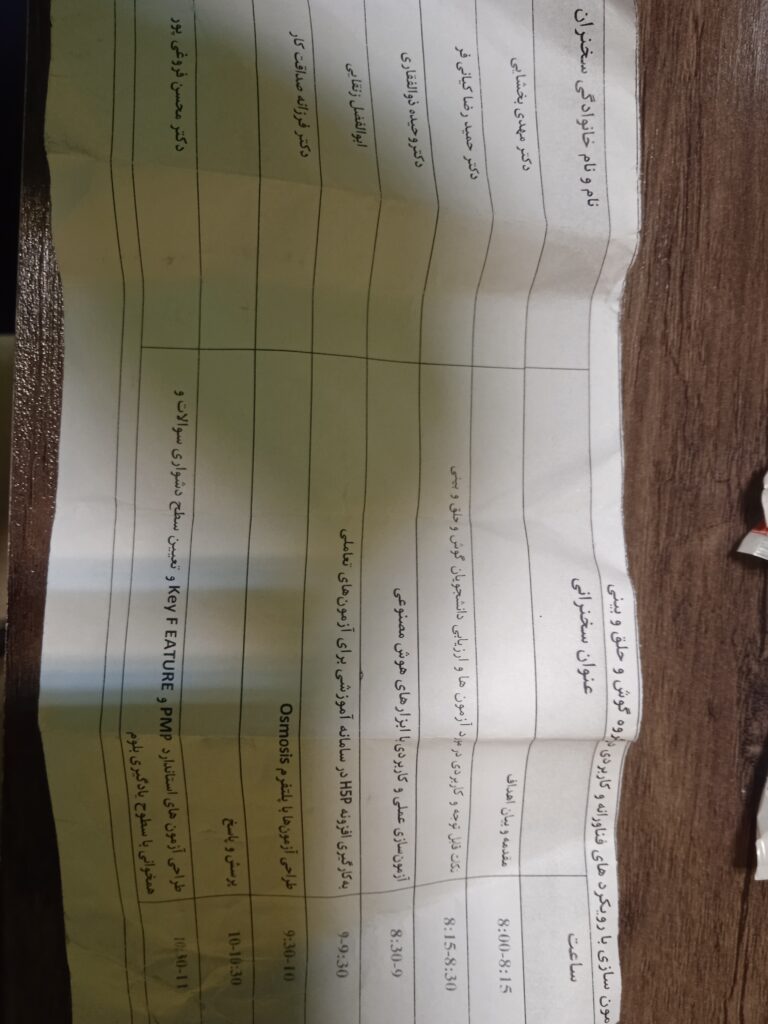 مون سازی با رویکرد های فناورانه و کاربردی در
گروه گوش و حلق و بینی
ساعت عنوان سخنرانی نام و نام خانوادگی سخنران
8:00-8:15 مقدمه و بیان اهداف دکتر مهدی بخشایی
8:15-8:30 نکات قابل توجه و کاربردی در مورد آزمون ها و ارزیابی دانشجویان گوش و حلق و بینی دکتر حمید رضا کیانی فر
8:30-9 آزمون‌سازی عملی و کاربردی با ابزارهای هوش مصنوعی دکتر وحیده ذوالفقاری
9-9:30 به‌کارگیری افزونه H5P در سامانه آموزشی برای آزمون‌های تعاملی ابوالفضل زنقایی
9:30-10 طراحی آزمون‌ها با پلتفرم Osmosis دکتر فرزانه صداقت کار
10-10:30 پرسش و پاسخ
10:30-11 طراحی آزمون های استاندارد PMP و Key F EATURE و تعیین سطح دشواری سوالات و دکتر محسن فروغی پور
همخوانی با سطوح یادگیری بلوم